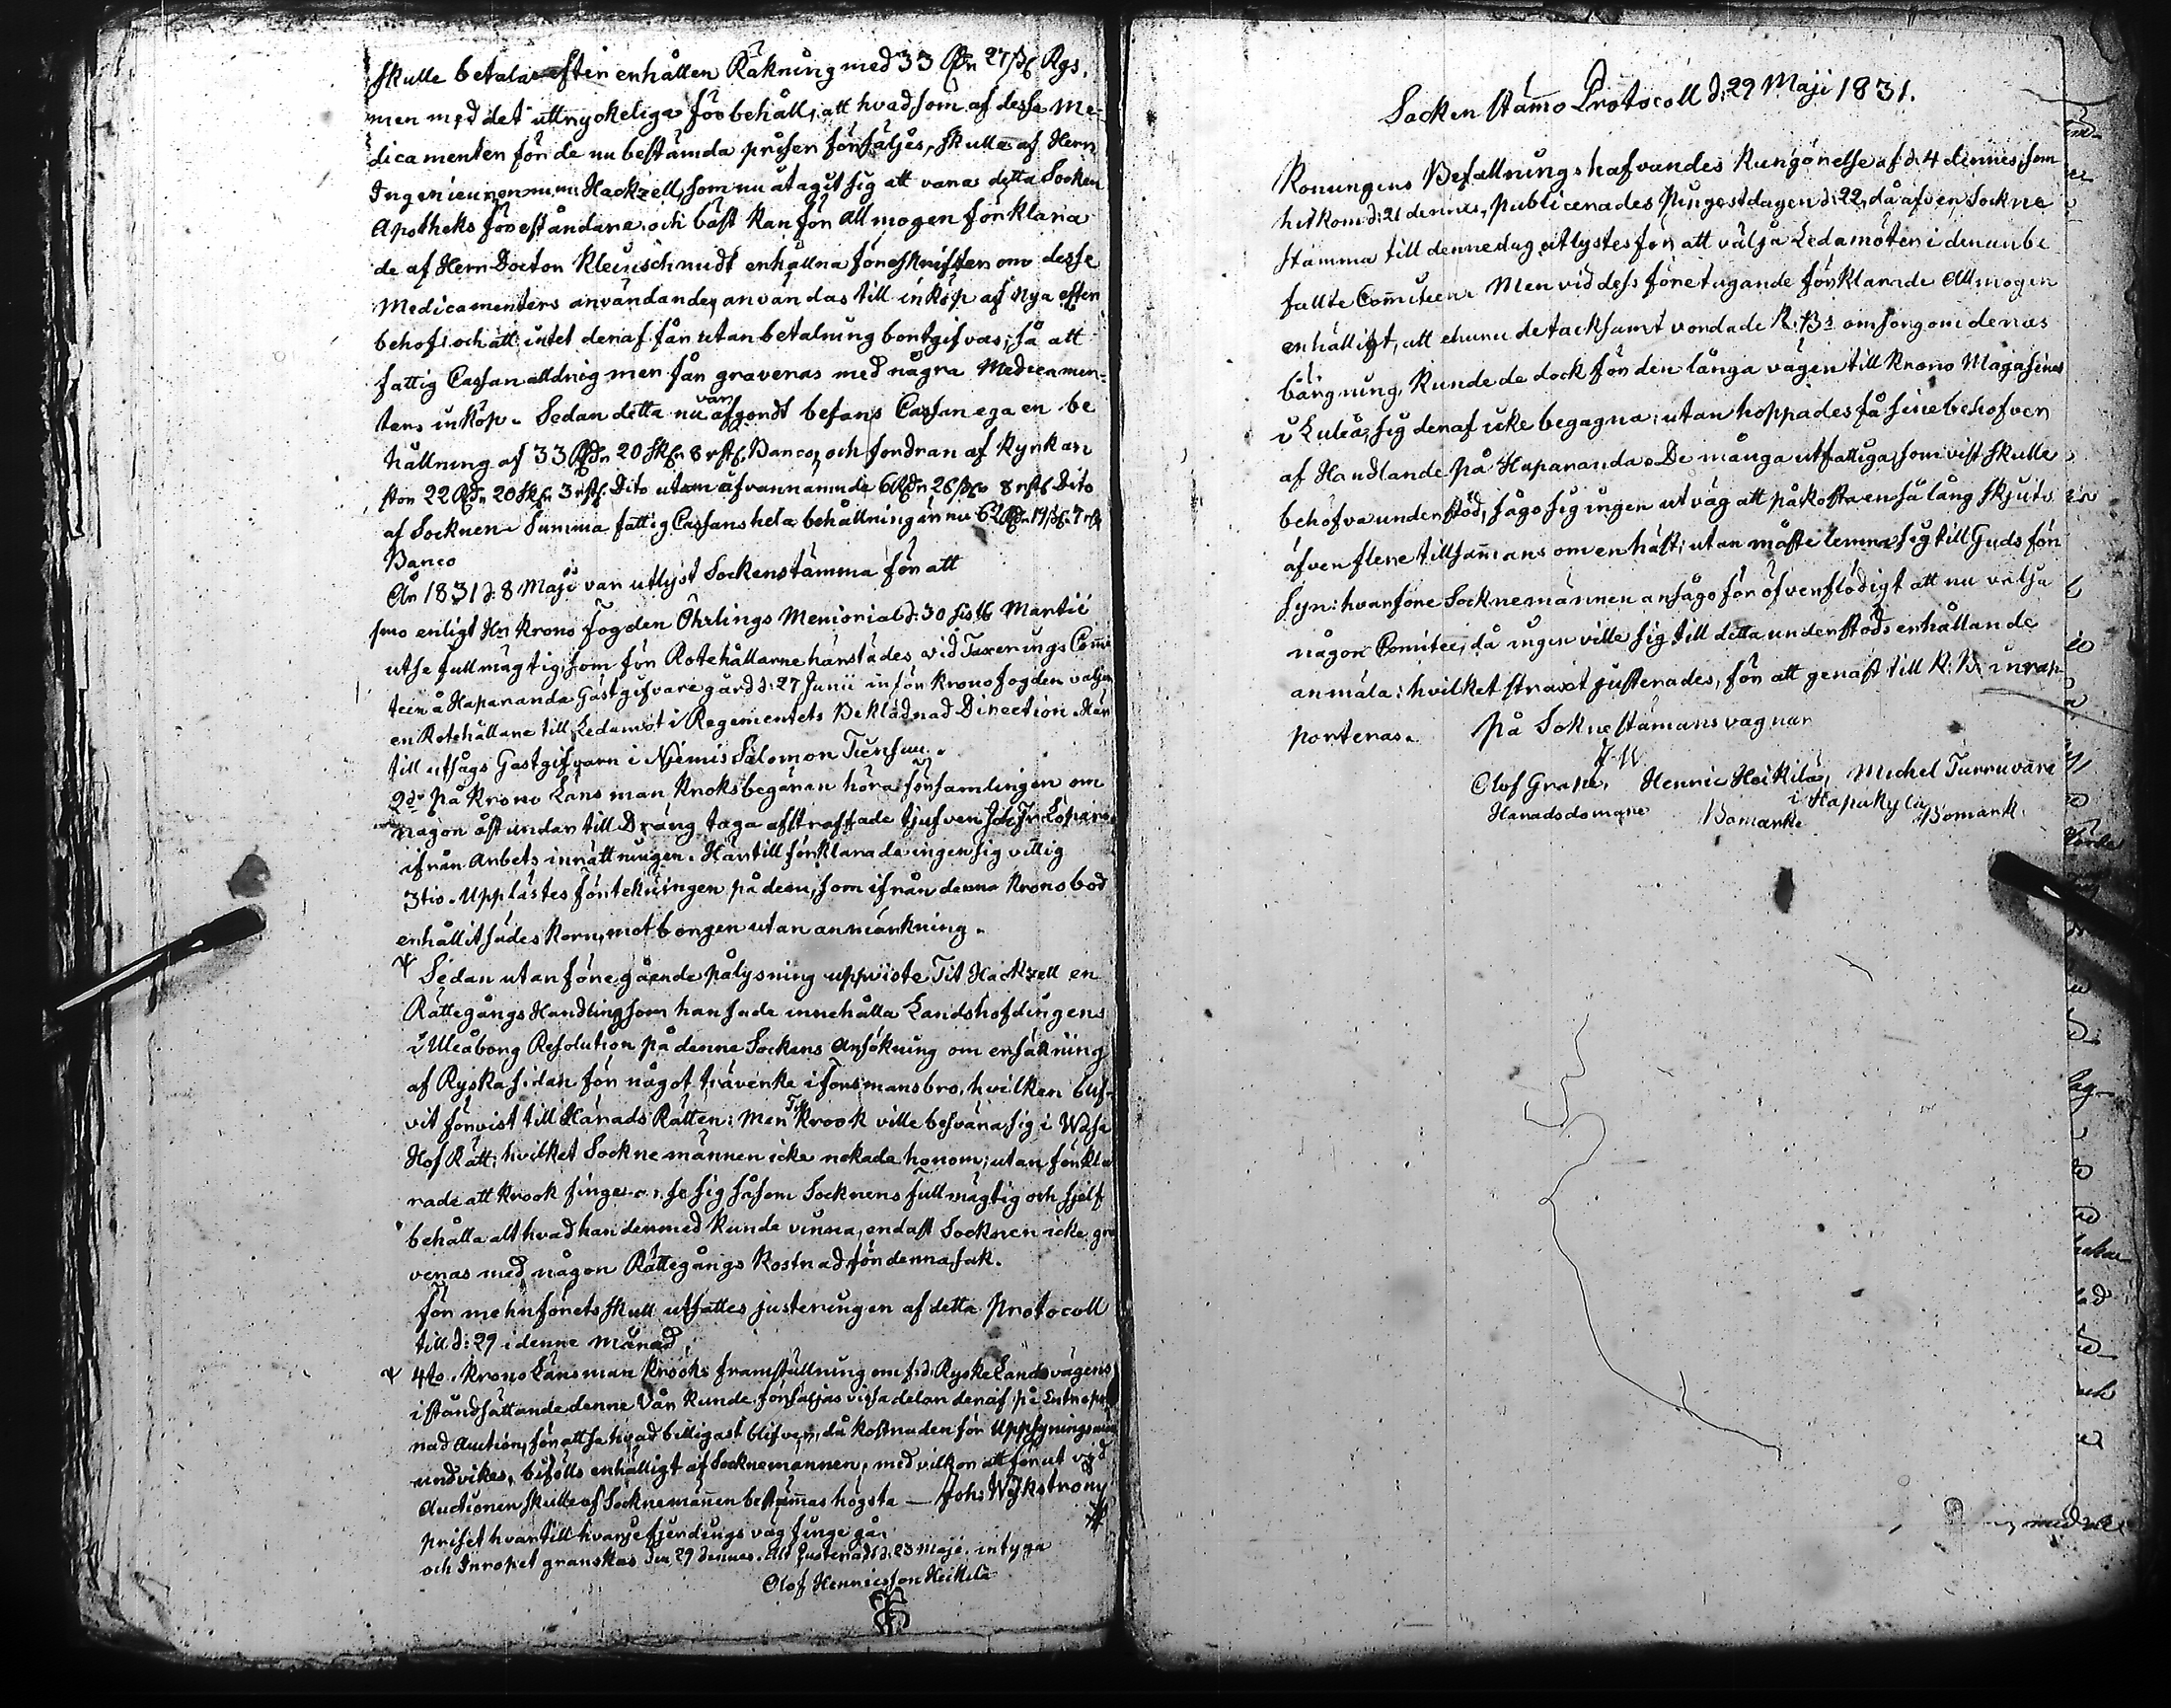 skulle betalas efter enhållen Räkning med 33 Rdr 27 ß Rgs.
men med det uttryckeliga förbehåll, att hvad som af desse Me-
dicamenter för de nu bestämda priser försäljes, skulle af Herr
Ingenieuren Hackzell, som nu åtagit sig att vara detta Socken
Apotheks föreståndare, och bäst kan för Allmogen förklara
de af Herr Doctor Kleinschmidt enhållna föreskrifter om desse
Medicamenters användande, användas till inköp af nya efter
behof: och att intet deraf får utan betalning bortgifvas; så att
fattig Cassan aldrig mer får graveras med några Medicamen-
ters inköp. Sedan detta nu var afgordt befans Cassan ega en be
hållning af 33 Rdr 20 sk 8 rst Banco, och fordran af Kyrkan
stor 22 Rdr 20 sk 3 rst Dito utom äfvannämnde 6 Rdr 26 ß 8 rst Dito
af Socknen. Summa fattig Cassans hela behållning är nu 62 Rdr 19 ß 7 rst
Banco
År 1831 d. 8 Maji var utlyst Sockenstämma för att
1mo enligt Hr Krono Fogden Öhrlings Memorial d: 30 sistl. Martii
utse fullmägtig, som för Rotehållarne härstädes vid Taxerings Comi
teen å Haparanda Gästgifvaregård d: 27 Junii inför Kronofogden välja
en Rotehållare till Ledamot i Regementets Beklädnad Direction. Här
till utsågs Gästgifvarn i Niemis Salomon
2do På Krono Länsman Kroks begäran höra församlingen om
någon åstundar till Dräng taga afstraffade tjufven Joh:
ifrån Arbets inrättningen. Härtill förklarade ingen sig villig
3tio. Upplästes förtekningen på dem, som ifrån denna Kronobod
enhållit sädes korn, mot borgen utan anmärkning.
Sedan utan föregående pålysning uppviste Tit Hackzell en
Rättegångs Handling som han sade innehålla Landshöfdingens
i Uleåborg Resolution på denne Sockens Ansökning om ersättning
af Ryska sidan för något trävirke i forsmansbro, hvilken blif-
vit förvist till Härads Rätten: Men Tit Krook ville besvära sig i Wasa
Hof Rätt; hvilket Sockne männen icke nekade honom; utan förkla
rade att Krook finge anse sig såsom Socknens fullmägtig och sjelf
behålla alt hvad han dermed kunde vinna, endast Socknen icke gra
veras med någon Rättegångs kostnad för denna sak.
för mehnförets skull utsattes justeringen af detta Protocoll
till d: 29 i denne månad.
4to. Krono Länsman Krooks framställning om f.d. Ryske Landsvägens
iståndsättande denne Vår kunde försäljas vissa delar deraf på Entrepre
nad Auction, för att se hvad billigast blifver, då kostnaden för Uppsynings
undvikes, bifölls enhälligt af Socknemännen, med vilkor att förut vid
Auctionen skulle af Socknemännen bestämmas högsta — Joh: Wikström
priset hvartill hvarje fjerdings väg finge gå.
och Inropet granskas den 29 dennes. Alt justeradt d. 23 Maji. intyga
Olof Henricsson Heikila
Socken stämo Protocoll d: 29 Maji 1831.
Konungens Befallningshafvandes Kungörelse af d: 4 dennes, som
hitkom d: 21 dennes, publicerades Pingestdagen d: 22, då äfven Sockne
stämma till denne dag utlystes för att välja Ledamöter i den anbe
fallte Comiteen. Men vid dess företagande förklarade Allmogen
enhälligt, att ehuru de tacksamt vördade K. Bs omsorg om deras
bärgning, kunde de dock för den långa vägen till Krono Magasinet
i Luleå, sig deraf icke begagna; utan hoppades få sine behofver
af Handlande på Haparanda. De många utfattiga, som vist skulle
behöfva understöd, sågo sig ingen utväg att påkosta en så lång skjuts
äfven flere tillsammans om en häst; utan måste lemna sig till Guds för
syn: hvarföre Socknemännen ansågo för öfverflödigt att nu välja
någon Comitee, då ingen ville sig till detta understöds enhållande
anmäla: hvilket straxt justerades, för att genast till K: B: inrap
porteras. På Soknestämans vagnar
Olof Grape, Henric Heikilä, Michel Turnuvara
Häradsdomare i Hapakylä
Bomärke Bomärk.